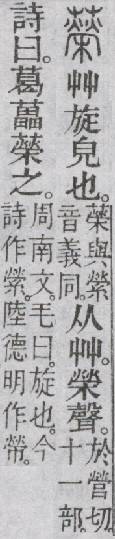 䕦艸旋皃也。䕦與縈
音義同。从艸。榮聲。於營切。
十一部。
詩曰。葛藟䕦之。周南文。毛曰。旋也。今
詩作縈。陸德明作。